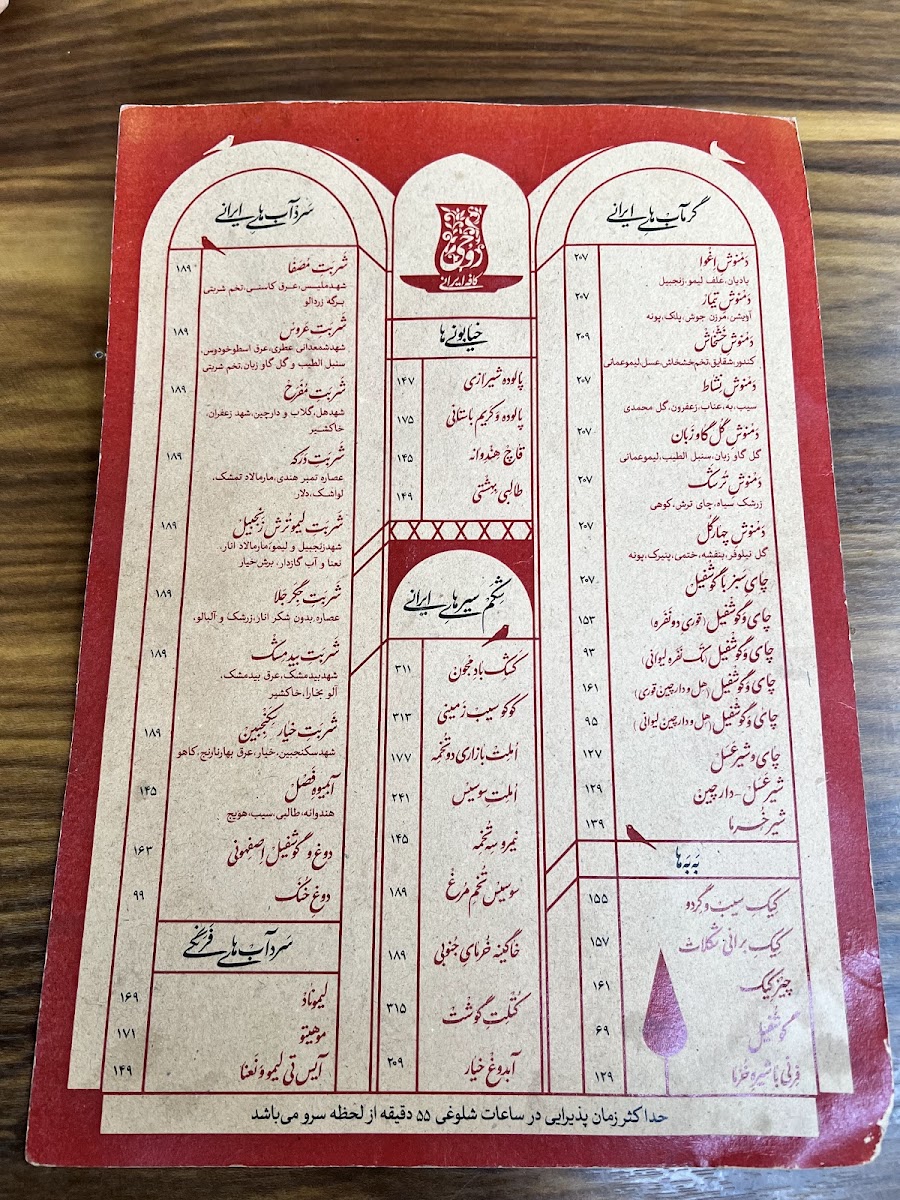 گرمآب هاے ایرانے
دمنوش اغوا ۲۰۷
بادیان، علف لیمو، زنجبیل
دمنوش تیمار ۲۰۷
آویشن، مرزن جوش، پلک، پونه
دمنوش خشخاش ۲۰۹
کندور، شقایق، تخم خشخاش، عسل، لیموعمانی
دمنوش نشاط ۲۰۷
سیب، به، عناب، زعفرون، گل محمدی
دمنوش گل گاو زبان ۲۰۷
گل گاو زبان، سنبل الطیب، لیموعمانی
دمنوش ترشک ۲۰۷
زرشک سیاه، چای ترش، کوهی
دمنوش چهارگل ۲۰۷
گل نیلوفر، بنفشه، ختمی، پنیرک، پونه
چای سبز با گوشفیل ۲۰۷
چای و گوشفیل (قوری دو نفره) ۱۵۳
چای و گوشفیل (تک نفره لیوانی) ۹۳
چای و گوشفیل (هل و دارچین قوری) ۱۶۱
چای و گوشفیل (هل و دارچین لیوانی) ۹۵
چای و شیر عسل ۱۲۷
شیر عسل - دارچین ۱۲۹
شیر خرما ۱۳۹
به به ها
کیک سیب و گردو ۱۵۵
کیک برانی شکلات ۱۵۷
چیزکیک ۱۶۱
گوشفیل ۶۹
فرنی با شیره خرما ۱۲۹
کافه ایرانے
خیابونے ها
پالوده شیرازی ۱۴۷
پالوده و کریم باستانی ۱۷۵
قاچ هندوانه ۱۴۵
طالبی بهشتی ۱۴۹
شکم سیر هاے ایرانے
کشک بادمجون ۳۱۱
کوکو سیب زمینی ۳۱۳
املت بازاری دو تخمه ۱۷۷
املت سوسیس ۲۴۱
نیمرو سه تخمه ۱۴۵
سوسیس تخم مرغ ۱۸۹
خاگینه خرمای جنوبی ۱۸۹
کتلت گوشت ۳۱۵
آبدوغ خیار ۲۰۹
سردآب هاے ایرانے
شربت مصفا ۱۸۹
شهدملیس، عرق کاسنی، تخم شربتی
برگه زردالو
شربت عروس ۱۸۹
شهدشمعدانی عطری، عرق اسطوخودوس،
سنبل الطیب و گل گاو زبان، تخم شربتی
شربت مفرح ۱۸۹
شهدهل، گلاب و دارچین، شهد زعفران،
خاکشیر
شربت درکه ۱۸۹
عصاره تمبر هندی، مارمالاد تمشک،
لواشک، دلار
شربت لیموترش زنجبیل ۱۸۹
شهدزنجبیل و لیمو، مارمالاد انار،
نعنا و آب گازدار، برش خیار
شربت جگر جلا ۱۸۹
عصاره بدون شکر انار، زرشک و آلبالو،
شربت بیدمشک ۱۸۹
شهدبیدمشک، عرق بیدمشک،
آلو بخارا، خاکشیر
شربت خیار سکنجبین ۱۸۹
شهدسکنجبین، خیار، عرق بهارنارنج، کاهو
آبمیوه فصل ۱۴۵
هندوانه، طالبی، سیب، هویج
دوغ و گوشفیل اصفهونی ۱۶۳
دوغ خنک ۹۹
سردآب هاے فرنگے
لیموناد ۱۶۹
موهیتو ۱۷۱
آیس تی لیمو و نعنا ۱۴۹
حداکثر زمان پذیرایی در ساعات شلوغی ۵۵ دقیقه از لحظه سرو می‌باشد